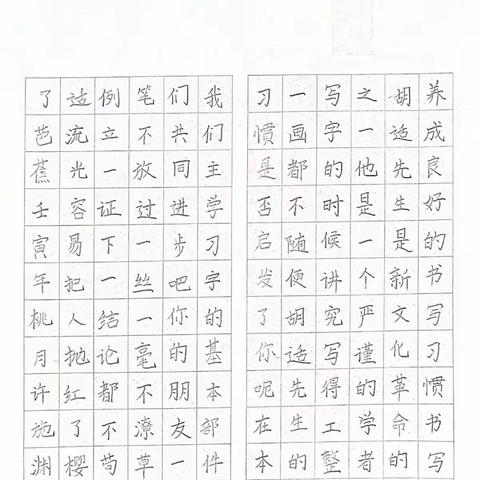 养成良好的书写习惯书写
胡适先生是新文化革命的
之一他是一个严谨的学者
写字的时候讲究写得工整
一画都不随便胡适先生的
习惯是否启发了你呢在本
我们主学习字的基本部件
们共同进步吧你的朋友一
笔不放过一丝一毫不潦草
例立一证下一结论都不苟
适流光容易把人抛红了樱
了芭蕉壬寅年桃月许施渊